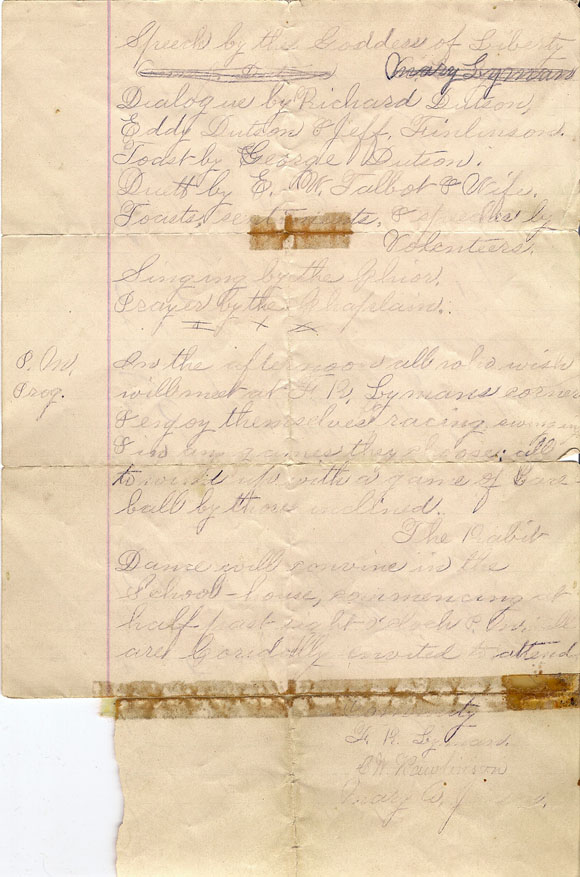 Speech by the Goddess of Liberty
Mary Lyman
Dialogue by Richard Dutson,
Eddy Dutson & Jeff. Finlinson.
Toast by George Dutson.
Druett by E. W. Talbot & Wife.
Toasts, sentiments, & speeches by
Volenteers.
Singing by the Choir.
Prayer by the Chaplain.
P. M. Prog.
In the afternoon all who wish
will meet at F. R. Lymans corner
& enjoy themselves racing, swinging
& in any games they choose; all
to wind up with a game of Base
ball by those inclined.
The Rabit
Dance will convine in the
School-house, commencing at
half past eight oclock P. M. all
are Coredolly invited to attend
F. R. Lyman.
C. W. Rawlinson
Mary A.